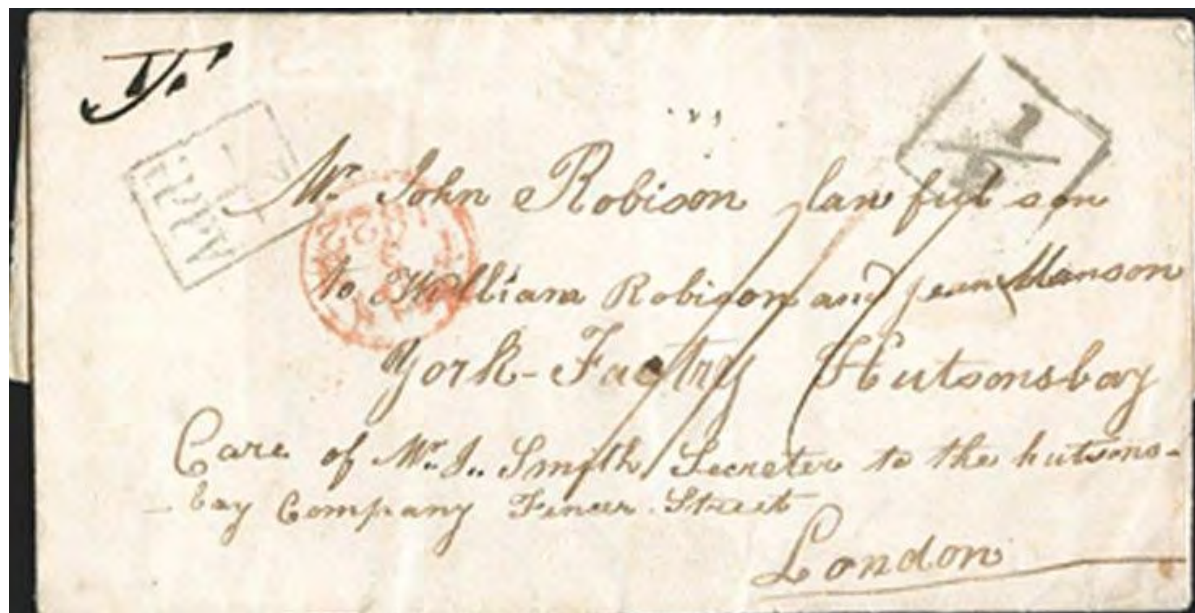 1/2
Mr. John Robison lawful son
to William Robison and jean Manson
York-Factry Hutsonsbay
Care of Mr. J.. Smith Secreter to the hutsons-
-bay Company Fincer Street
London